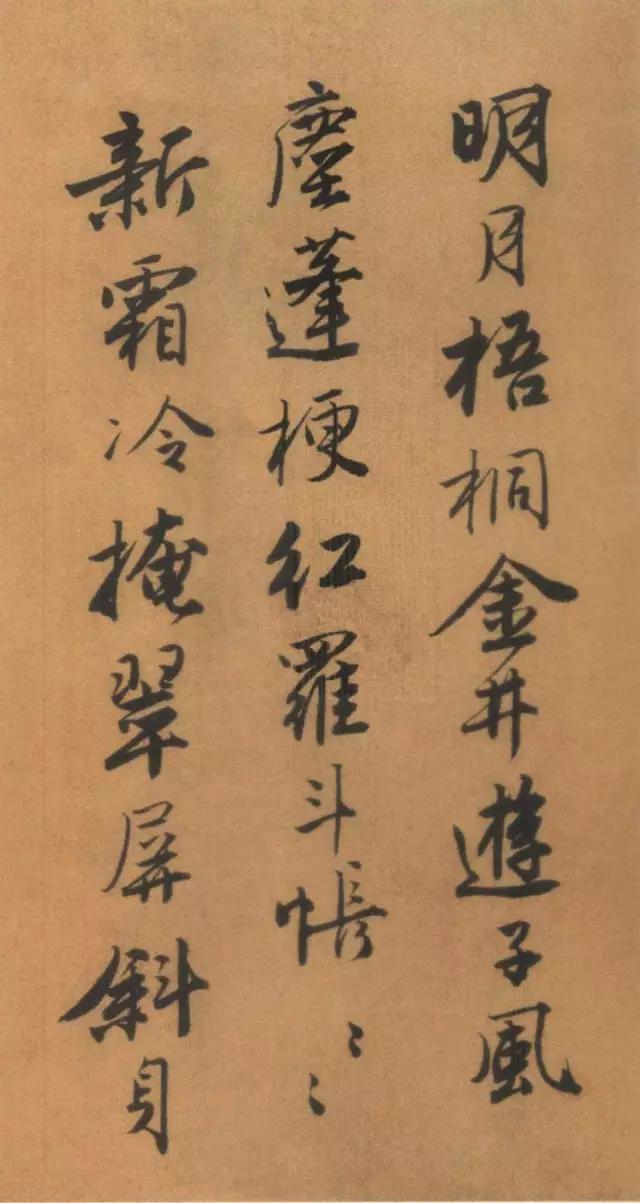 明月梧桐金井遊子風
塵蓬梗紅羅斗帳
新霜冷掩翠屏斜